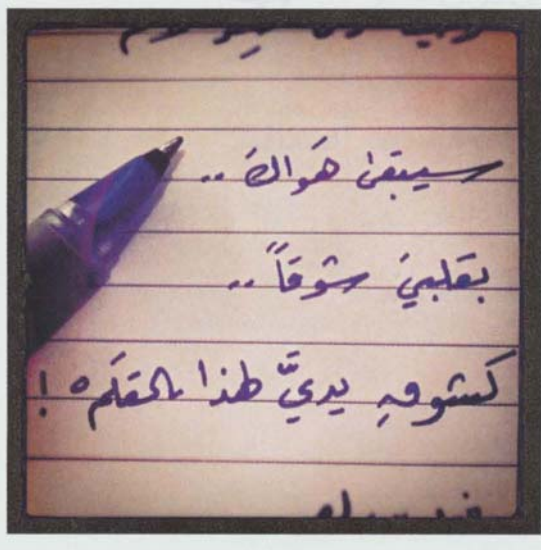 سيبقى هَواكَ ..
بقلبيَ شوقاً ..
كشوقِ يديَّ لهذا القلَم !